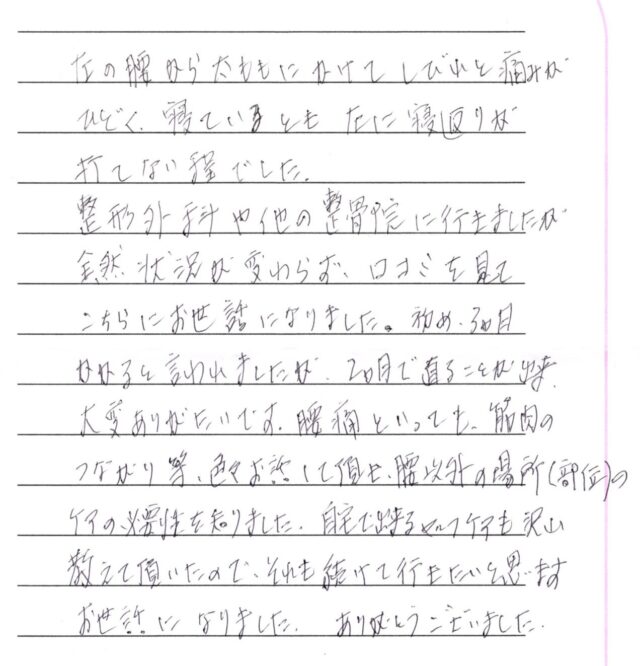 左の腰から太ももにかけてしびれと痛みが
ひどく、寝ているとも 左に寝返りが
打てない程でした。
整形外科や他の整骨院に行きましたが
全然状況が変わらず、口コミを見て
こちらにお世話になりました。初め、3ヵ月
かかると言われましたが、2ヵ月で直ることが出来、
大変ありがたいです。腰痛といっても、筋肉の
つながり等、色々お話して頂き、腰以外の場所(部位)の
ケアの必要性を知りました。自宅で出来るセルフケアも沢山
教えて頂いたので、それも続けて行きたいと思います
お世話になりました。 ありがとうございました。